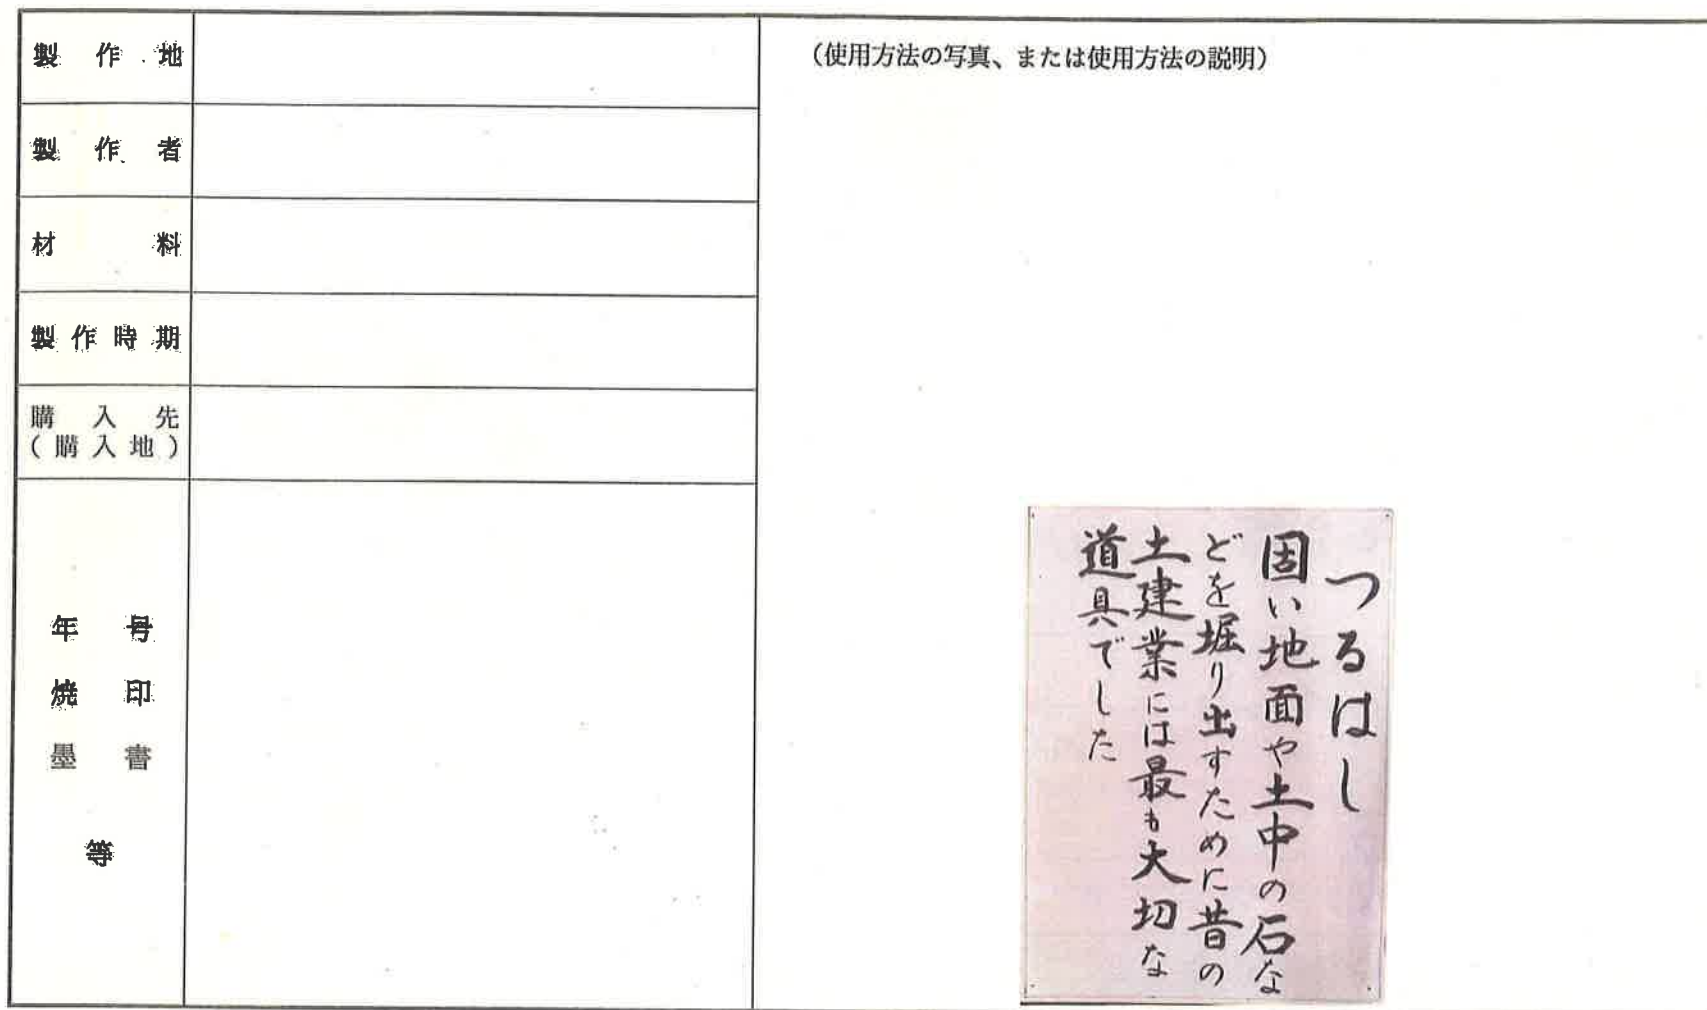 製作地
製作者
材料
製作時期
購入先
(購入地)
年号
焼印
墨書
等
(使用方法の写真、または使用方法の説明)
つるはし
固い地面や土中の石な
どを堀り出すために昔の
土建業には最も大切な
道具でした